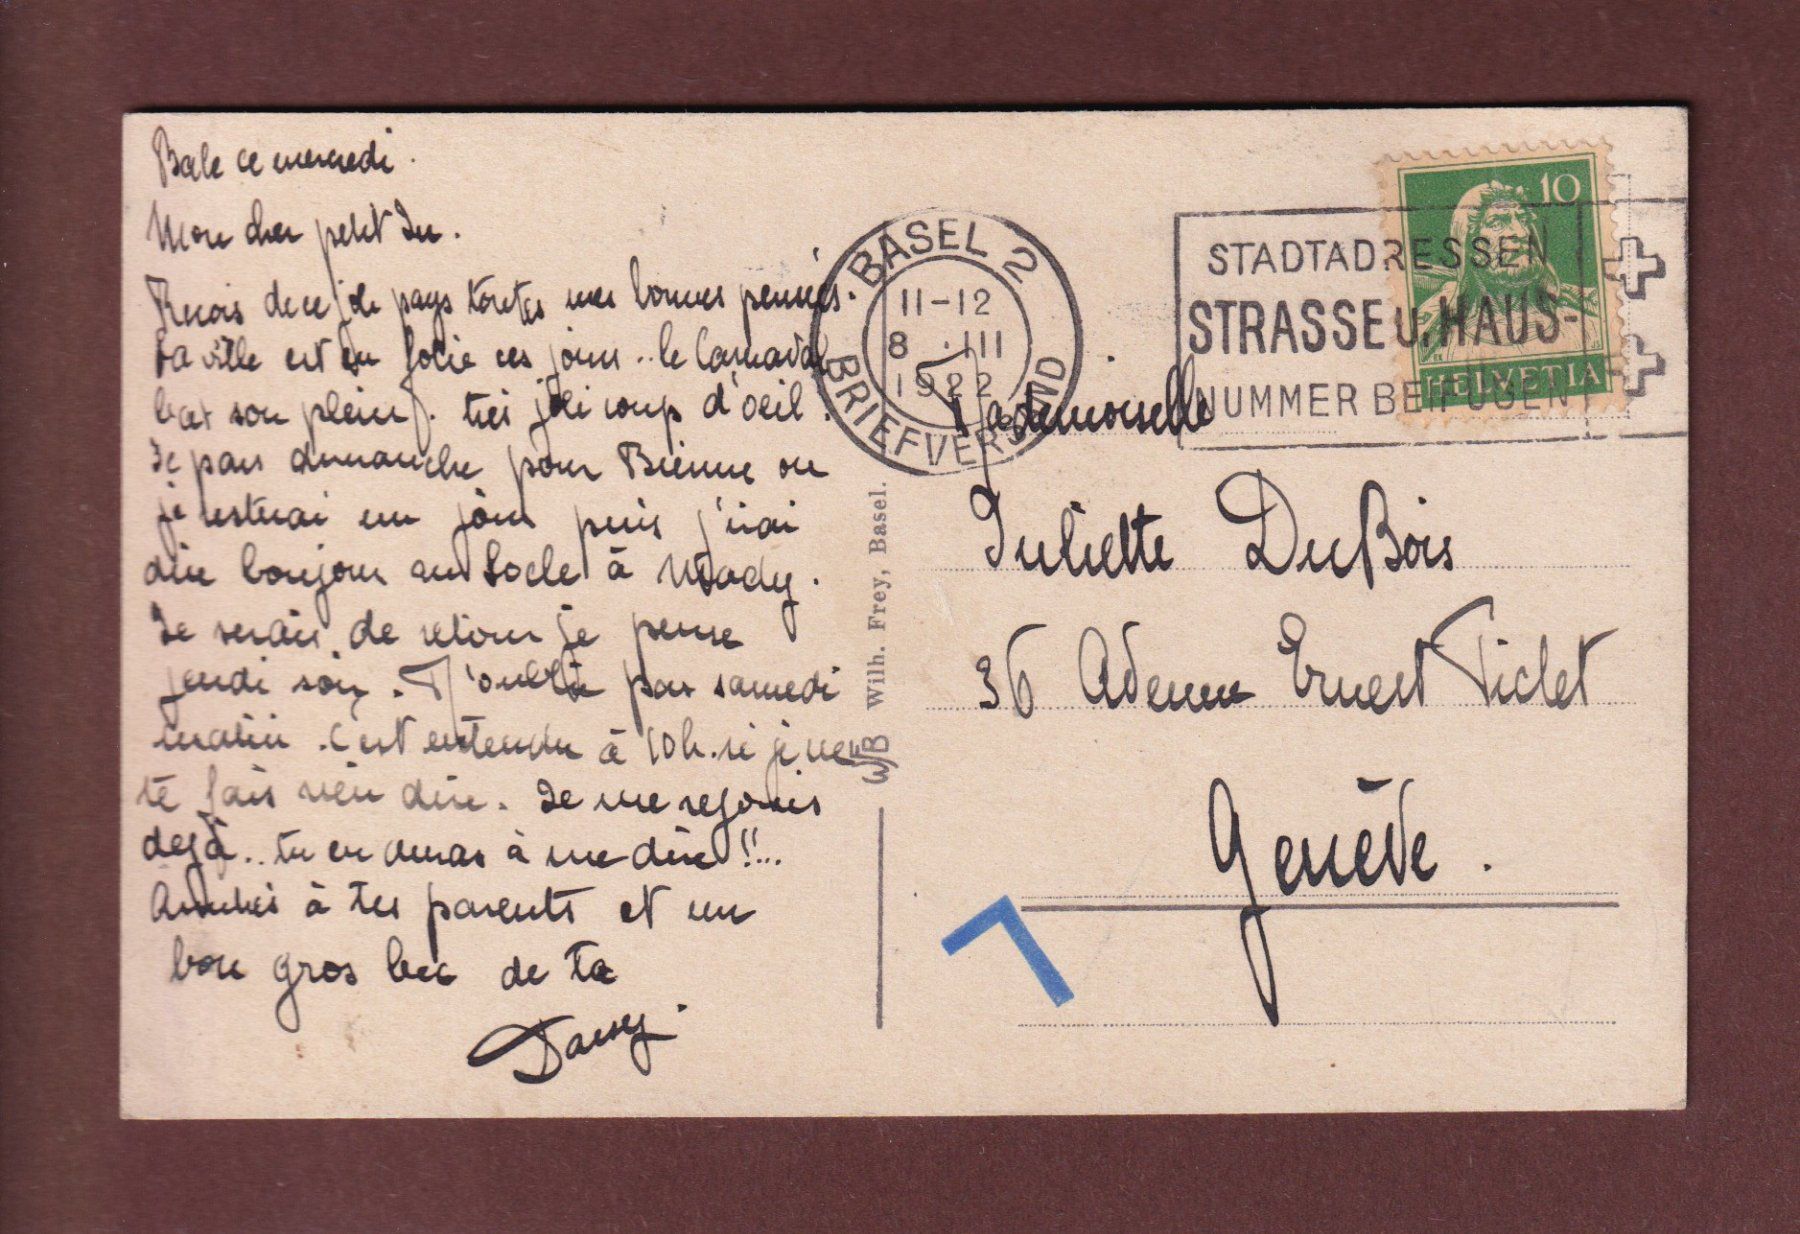 Bale ce mercredi.
Mon cher petit Ju.
Reçois de ce joli pays toutes mes bonnes pensées.
La ville est en folie ces jours.. le Carnaval
bat son plein. très joli coup d'oeil.
Je pars dimanche pour Bienne ou
je resterai un jour puis j'irai
dire bonjour au Locle à Mady.
Je serais de retour je pense
jeudi soir. N'oublie pas samedi
matin. c'est entendu à 10h. si je ne
te fais rien dire. Je me rejouis
dejà.. tu en auras à me dire!!...
Amitiés à tes parents et un
bon gros bec de ta
Daisy.
BASEL 2
11-12
8 .III
1922
BRIEFVERSAND
STADTADRESSEN
STRASSE U. HAUS-
NUMMER BEIFÜGEN
10
HELVETIA
Mademoiselle
Juliette DuBois
36 Avenue Ernest Pictet
Genève.
Wilh. Frey, Basel.
WFB